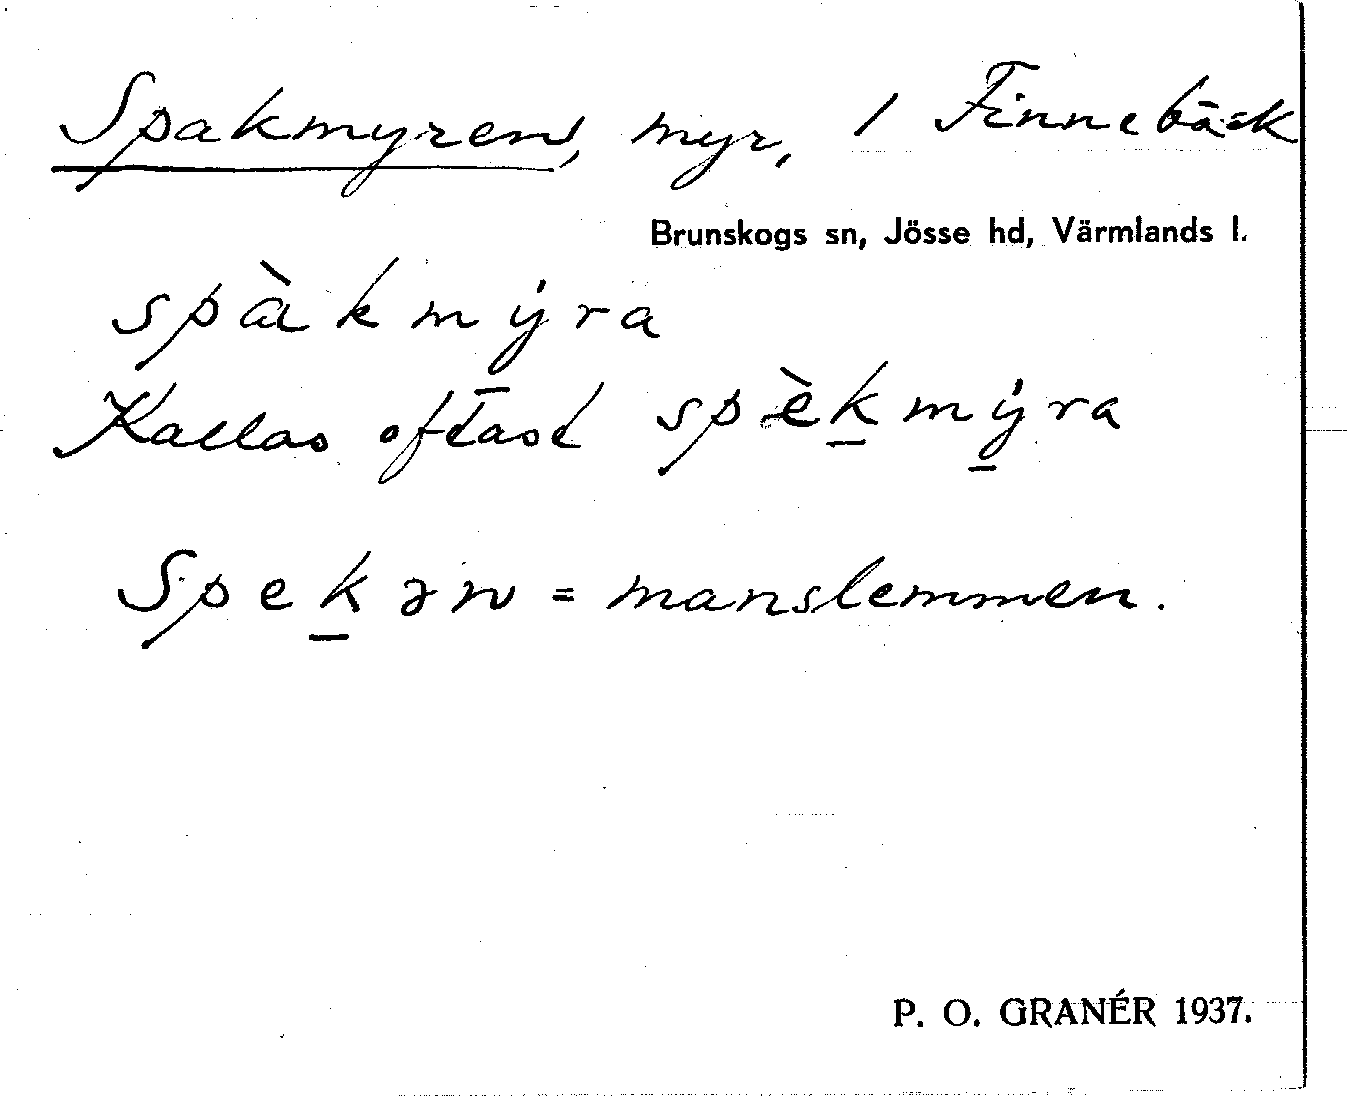 Spakmyren, myr, 1 Finnebäck
Brunskogs sn, Jösse hd, Värmlands l.
spàkmýra
Kallas oftast spèk̲mý̲ra
Spek̲ən = manslemmen.
P. O. GRANÉR 1937.